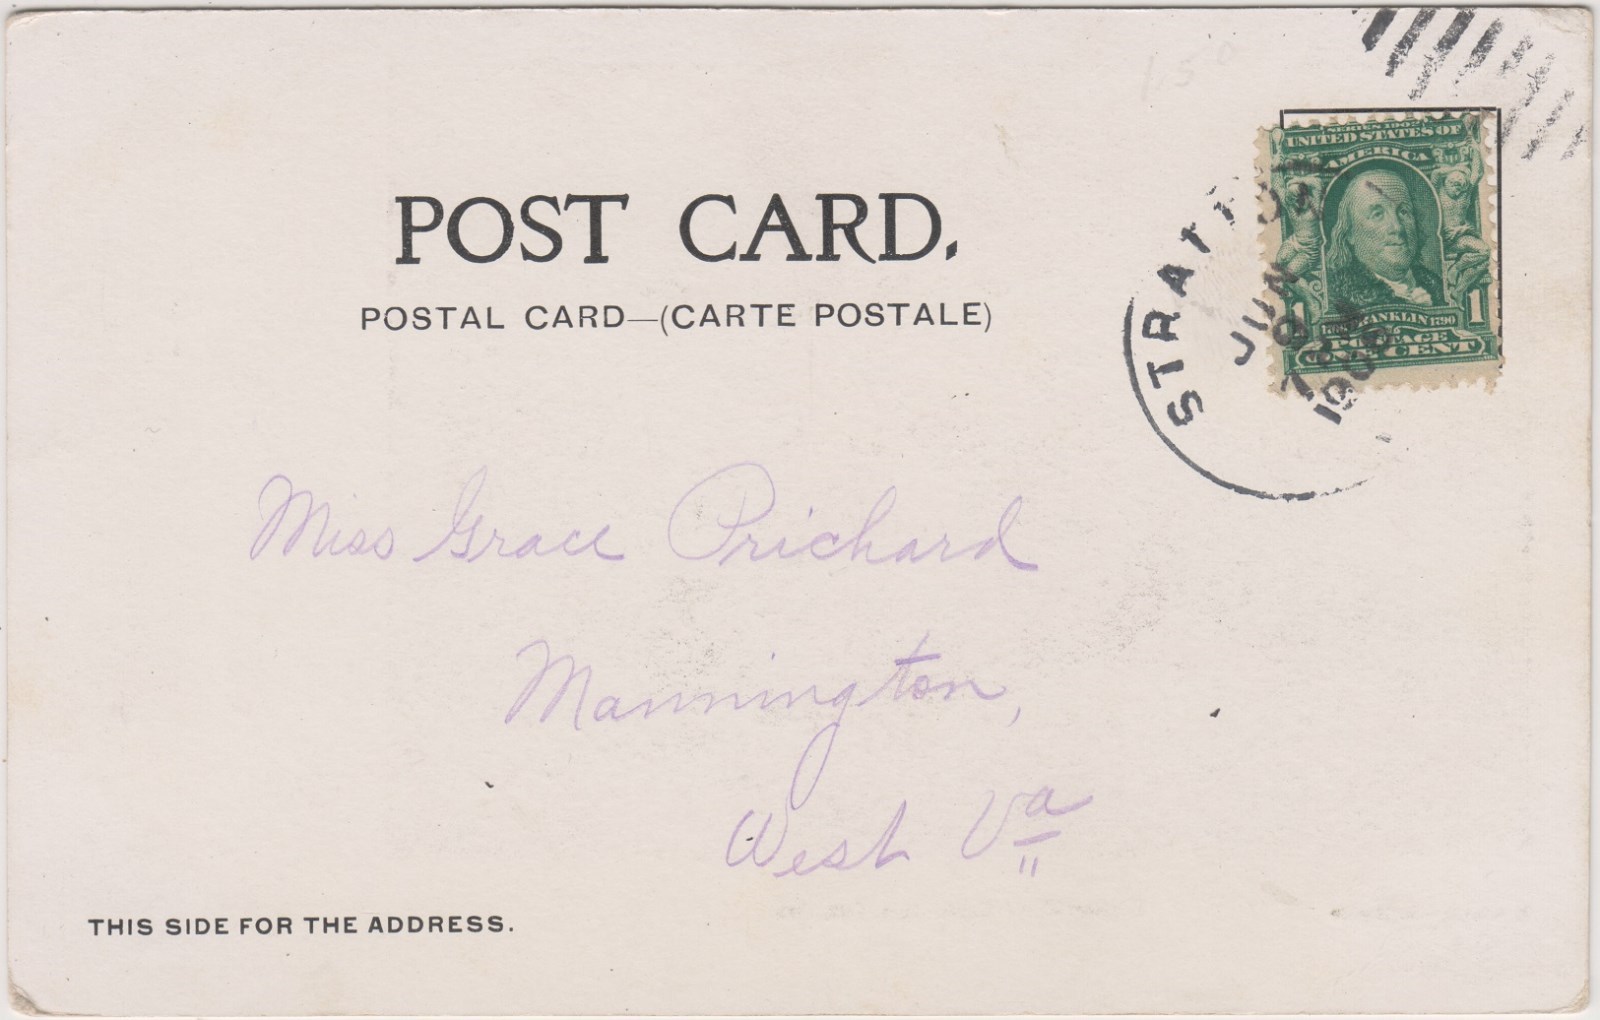 POST CARD.
POSTAL CARD—(CARTE POSTALE)
SERIES 1902
UNITED STATES OF
AMERICA
1 1
FRANKLIN 1790
POSTAGE
ONE CENT
JUN
7
Miss Grace Prichard
Mannington,
West Va
THIS SIDE FOR THE ADDRESS.